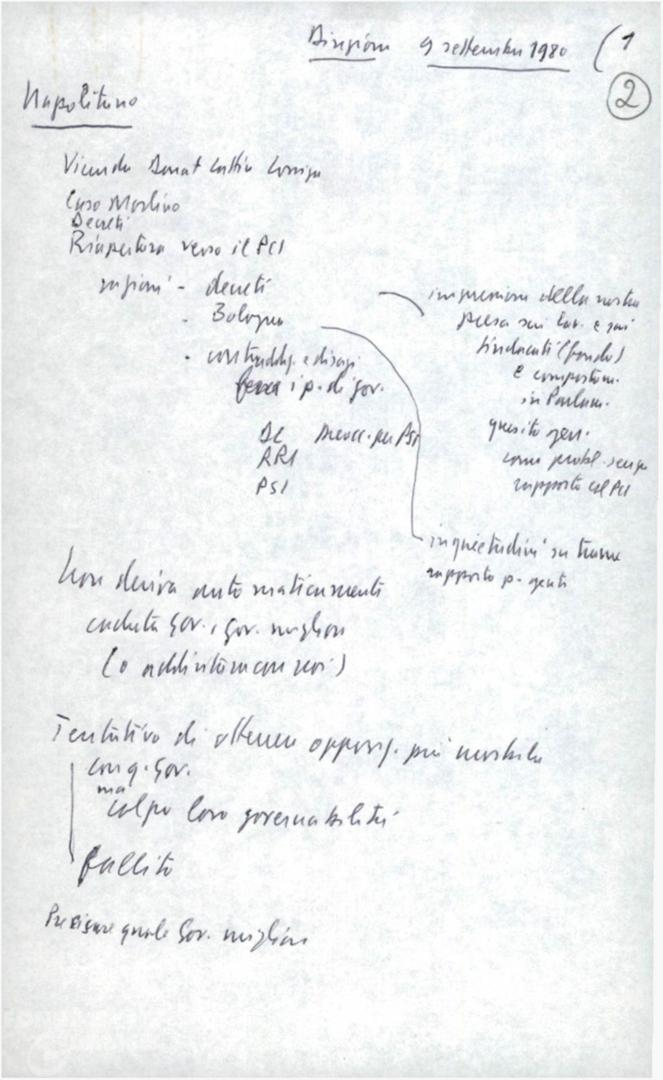 Direzione 9 settembre 1980 (1
2
Napolitano
Vicenda Donat Cattin Cossiga
Caso Morlino
Decreti
Riapertura verso il PCI
ragioni - decreti
- Bologna
- contraddiz. e disagi
fra i p. di gov.
DC preocc. per PSI
PRI
PSI
impressione della nostra
presa sui lav. e sui
sindacati (fondo)
e comportam.
in Parlam.
quesito gen.
come probl. senza
rapporto col PCI
inquietudini su trame
rapporto p-genti
Non deriva automaticamente
caduta Gov., Gov. migliore
(o addirittura con noi)
Tentativo di ottenere opposiz. più morbida
con q. Gov.
ma
colpo loro governabilità
fallito
Precisare quale Gov. migliore